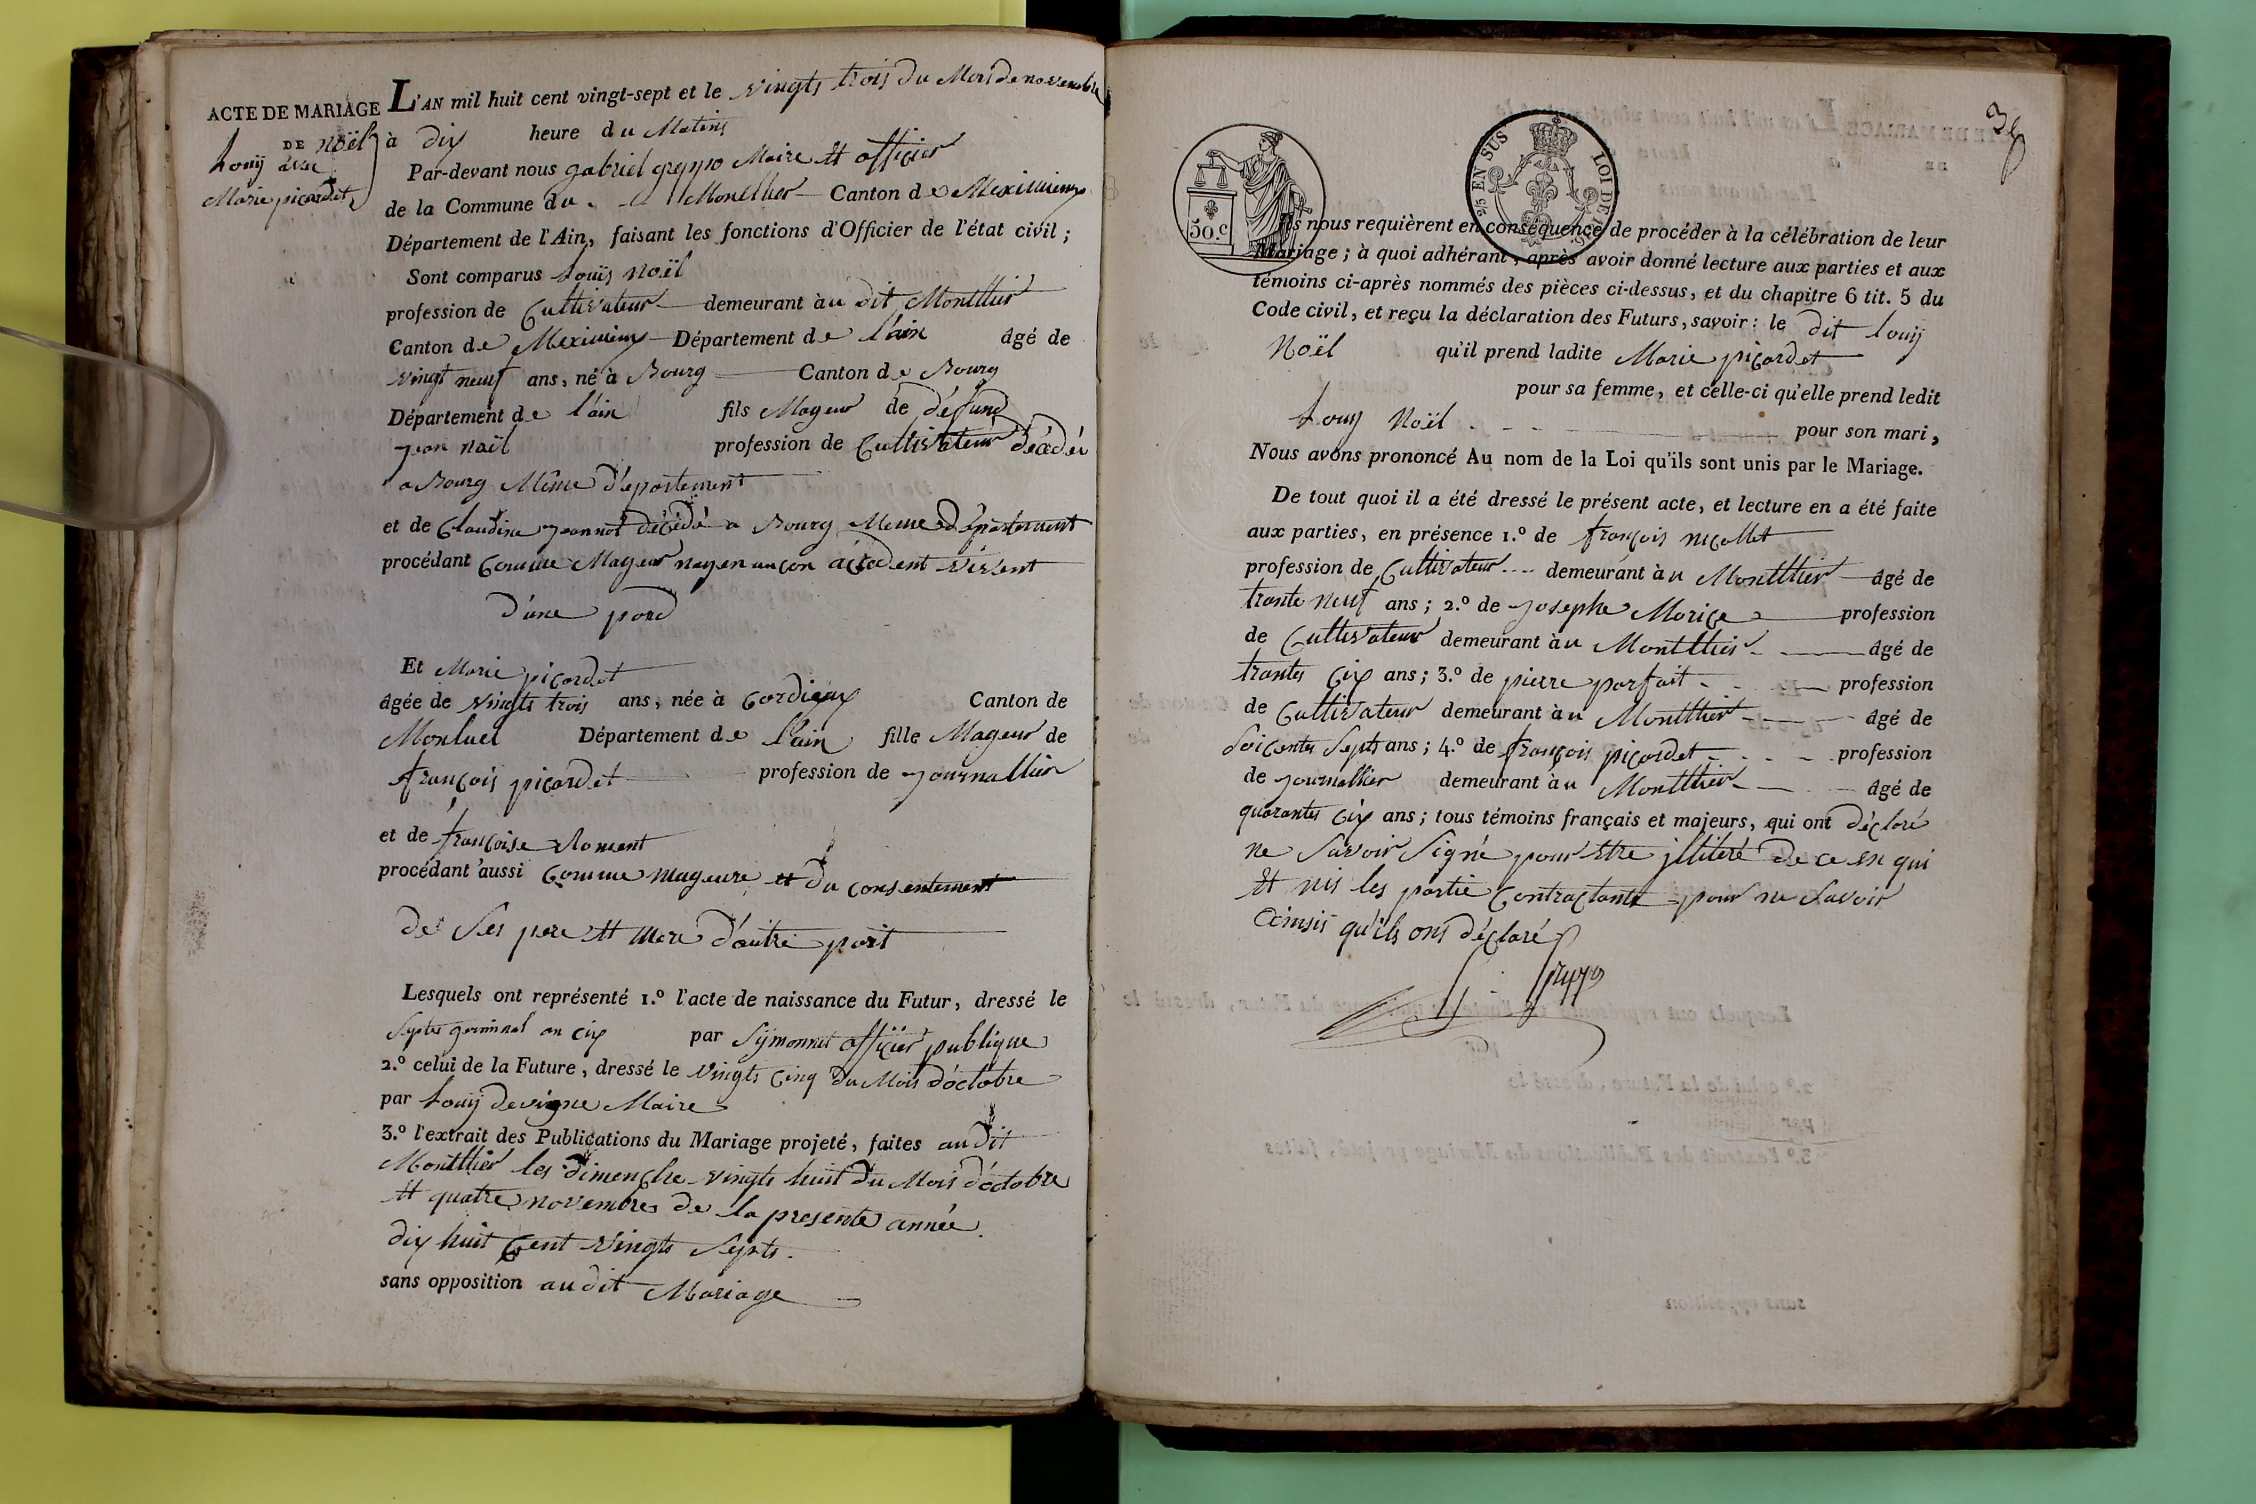 ACTE DE MARIAGE
DE Noël
Louij avec
Marie picardet
L'AN mil huit cent vingt-sept et le vingts trois du Mois de novembre
à dix heure du Matins
Par-devant nous gabriel greppo Maire et officier
de la Commune du Montellier Canton de Meximieux
Département de l'Ain, faisant les fonctions d'Officier de l'état civil ;
Sont comparus Louïs Noël
profession de Cultivateur demeurant àu dit Montllier
Canton de Meximieux Département de l'ain âgé de
vingt neuf ans, né à Bourg Canton de Bourg
Département de l'ain fils Mageur de défund
jean Noël profession de Cultivateur décédér
a Bourg Même département
et de Claudine jeannot décédé a Bourg Meme département
procédant Comme Mageur nayen aucon acsedent vivent
d'une pard
Et Marie picardet
âgée de vingts trois ans, née à Cordieux Canton de
Monluel Département de l'ain fille Mageur de
françois picardet profession de journallier
et de françoise
procédant aussi Comme mageure et du consentement
de Ses pere et mere d'autre part
Lesquels ont représenté 1.º l'acte de naissance du Futur, dressé le
Septes germinal an cix par Sijmonnet officier publique
2.º celui de la Future, dressé le vingts cinq du Mois d'octobre
par Louij devigne Maire
3.º l'extrait des Publications du Mariage projeté, faites audit
Montllier les dimenche vingts huit du Mois d'octobre
et quatre novembre de la presente année
dix huit Cent vingts Septs.
sans opposition audit Mariage
38
50.c
2/5 EN SUS LOI DE
Ils nous requièrent en conséquence de procéder à la célébration de leur
Mariage ; à quoi adhérant, après avoir donné lecture aux parties et aux
témoins ci-après nommés des pièces ci-dessus, et du chapitre 6 tit. 5 du
Code civil, et reçu la déclaration des Futurs, savoir : le dit Louij
Noël qu'il prend ladite Marie picardet
pour sa femme, et celle-ci qu'elle prend ledit
Louij Noël pour son mari,
Nous avons prononcé Au nom de la Loi qu'ils sont unis par le Mariage.
De tout quoi il a été dressé le présent acte, et lecture en a été faite
aux parties, en présence 1.º de françois nicollet
profession de Cultivateur demeurant àu Montllier âgé de
trante neuf ans ; 2.º de josephe Morice profession
de Cultivateur demeurant àu Montllier âgé de
trantes Cix ans ; 3.º de pierre parfait profession
de Cultivateur demeurant àu Montllier âgé de
Soicentes Septs ans ; 4.º de françois picardet profession
de journallier demeurant àu Montllier âgé de
quarantes Cix ans ; tous témoins français et majeurs, qui ont déclaré
ne Savoir Signé pour être jlliteré de ce en qui
et nis les partie Contractante pour ne Savoir
ainsis qu'ils ont déclaré
greppo